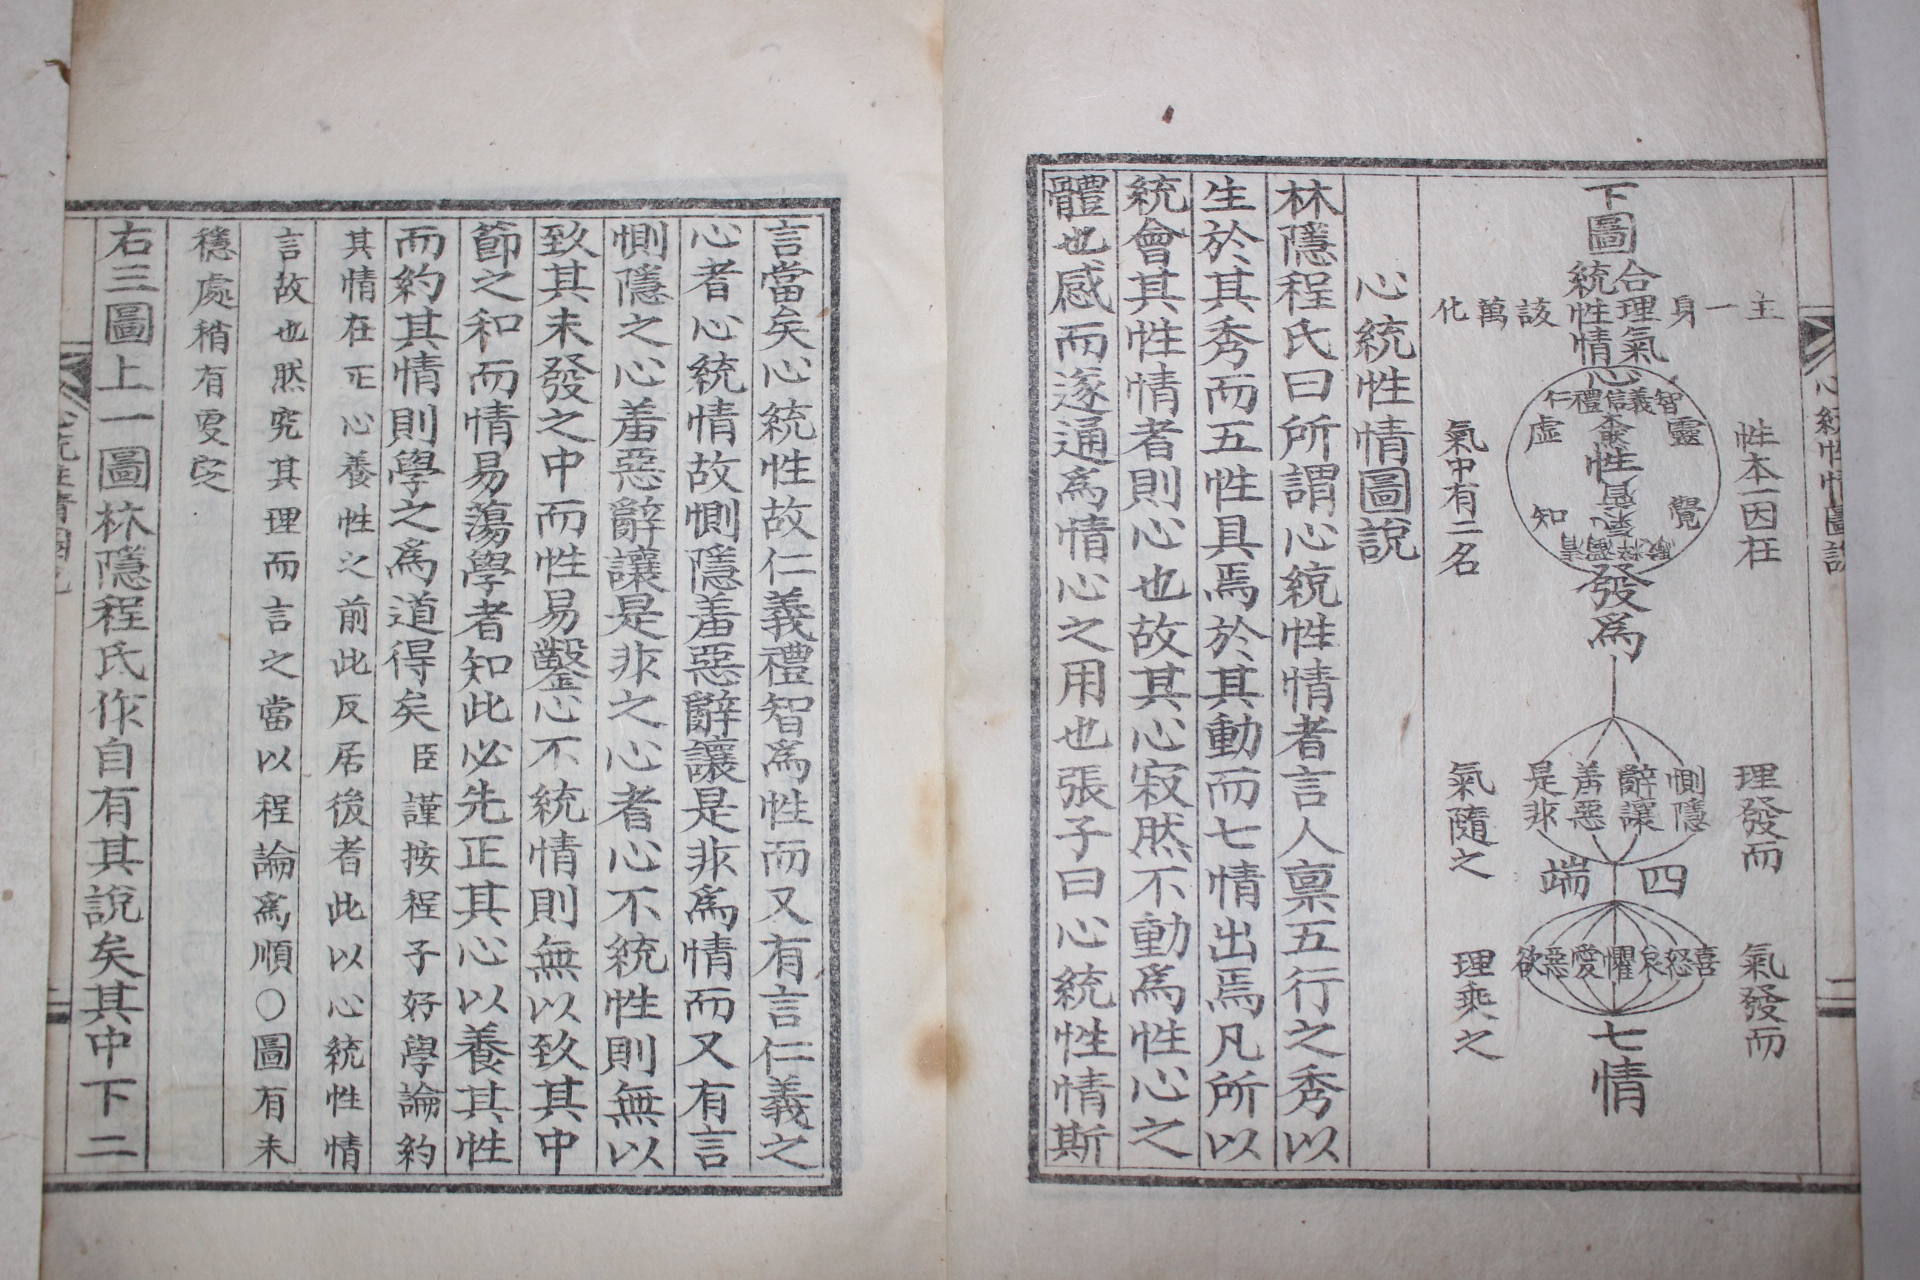 心統性情圖說
下圖
合理氣
統性情
主一身
該萬化
心
仁禮信義智
虛
靈
知
覺
性
發爲
性本一因在
氣中有二名
惻隱
辭讓
羞惡
是非
四端
理發而
氣隨之
喜怒哀懼愛惡欲
七情
氣發而
理乘之
心統性情圖說
林隱程氏曰所謂心統性情者言人禀五行之秀以
生於其秀而五性具焉於其動而七情出焉凡所以
統會其性情者則心也故其心寂然不動爲性心之
體也感而遂通爲情心之用也張子曰心統性情斯
言當矣心統性故仁義禮智爲性而又有言仁義之
心者心統情故惻隱羞惡辭讓是非爲情而又有言
惻隱之心羞惡辭讓是非之心者心不統性則無以
致其未發之中而性易鑿心不統情則無以致其中
節之和而情易蕩學者知此必先正其心以養其性
而約其情則學之爲道得矣臣謹按程子好學論約
其情在正心養性之前此反居後者此以心統性情
言故也然究其理而言之當以程論爲順○圖有未
穩處稍有更定
右三圖上一圖林隱程氏作自有其說矣其中下二